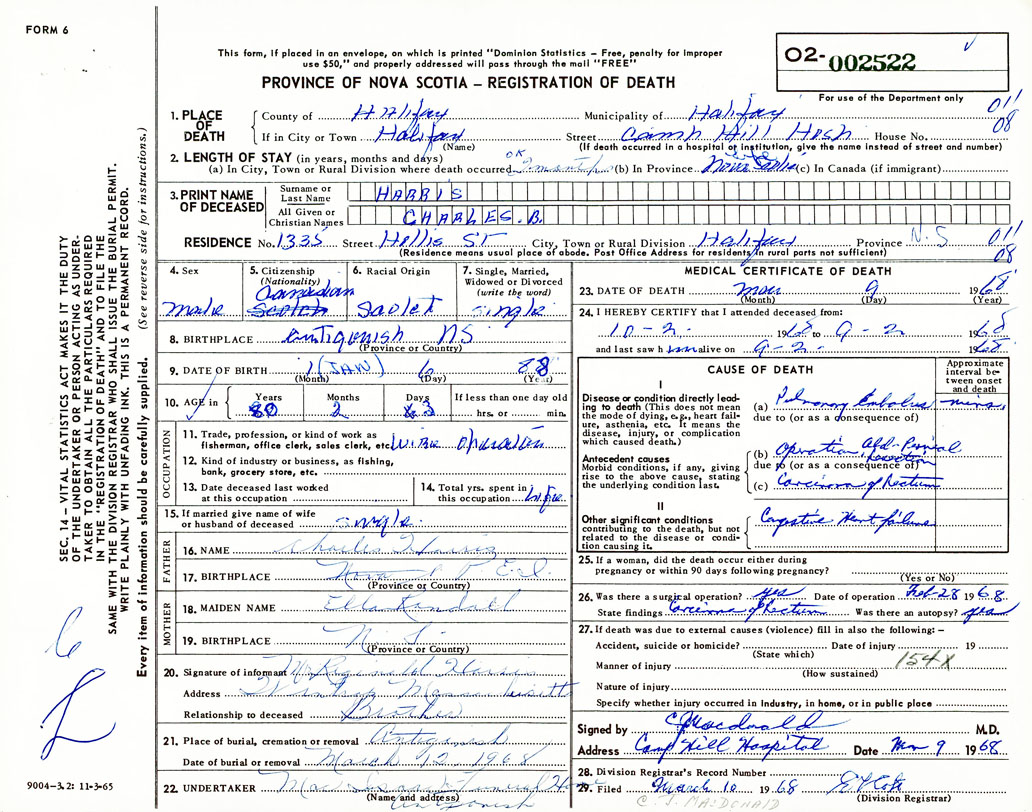 FORM 6
This form, if placed in an envelope, on which is printed "Dominion Statistics – Free, penalty for improper
use $50," and properly addressed will pass through the mail "FREE"
PROVINCE OF NOVA SCOTIA – REGISTRATION OF DEATH
O2-002522
For use of the Department only
011
08
1. PLACE OF DEATH
County of Halifax Municipality of Halifax
If in City or Town Halifax Street Camp Hill Hosp House No.
(Name) (If death occurred in a hospital or institution, give the name instead of street and number)
2. LENGTH OF STAY (in years, months and days)
(a) In City, Town or Rural Division where death occurred (b) In Province Life Nova Scotia (c) In Canada (if immigrant)
3. PRINT NAME OF DECEASED
Surname or Last Name HARRIS
All Given or Christian Names CHARLES.B.
RESIDENCE No. 1335 Street Hollis ST City, Town or Rural Division Halifax Province N.S
(Residence means usual place of abode. Post Office Address for residents in rural parts not sufficient)
011
08
4. Sex
male
5. Citizenship
(Nationality)
Canadian
Scotch
6. Racial Origin
Scotch
7. Single, Married,
Widowed or Divorced
(write the word)
Single
8. BIRTHPLACE Antigonish NS
(Province or Country)
9. DATE OF BIRTH 1 (JAN) 6 88
(Month) (Day) (Year)
10. AGE in
Years 80
Months 2
Days 3
If less than one day old
hrs. or min.
OCCUPATION
11. Trade, profession, or kind of work as
fisherman, office clerk, sales clerk, etc. Wire operator
12. Kind of industry or business, as fishing,
bank, grocery store, etc.
13. Date deceased last worked
at this occupation
14. Total yrs. spent in
this occupation Life
15. If married give name of wife
or husband of deceased Single.
FATHER
16. NAME Charles Harris
17. BIRTHPLACE P.E.I.
(Province or Country)
MOTHER
18. MAIDEN NAME Ella Randall
19. BIRTHPLACE N.S.
(Province or Country)
20. Signature of informant Mr Reginald Harris
Address Winthrop Massachusetts
Relationship to deceased Brother
21. Place of burial, cremation or removal Antigonish
Date of burial or removal March 12 1968
22. UNDERTAKER Funeral Home
(Name and address)
Antigonish
MEDICAL CERTIFICATE OF DEATH
23. DATE OF DEATH Mar 9 1968
(Month) (Day) (Year)
24. I HEREBY CERTIFY that I attended deceased from:
10-2- 1968 to 9-2 1968
and last saw him alive on 9-2- 1968
CAUSE OF DEATH
Approximate
interval be-
tween onset
and death
I
Disease or condition directly lead-
ing to death (This does not
mean the mode of dying, e.g., heart fail-
ure, asthenia, etc. It means the
disease, injury, or complication
which caused death.)
(a) Pulmonary Embolus mins.
due to (or as a consequence of)
Antecedent causes
Morbid conditions, if any, giving
rise to the above cause, stating
the underlying condition last.
(b) Operation Abd-Perineal Resection
due to (or as a consequence of)
(c) Carcinoma of Rectum
II
Other significant conditions
contributing to the death, but not
related to the disease or condi-
tion causing it.
Congestive Heart failure
25. If a woman, did the death occur either during
pregnancy or within 90 days following pregnancy?
(Yes or No)
26. Was there a surgical operation? yes Date of operation Feb-28 1968
State findings Carcinoma of Rectum Was there an autopsy? yes
27. If death was due to external causes (violence) fill in also the following: –
Accident, suicide or homicide? Date of injury 19
(State which)
154X
Manner of injury
(How sustained)
Nature of injury
Specify whether injury occurred in industry, in home, or in public place
Signed by C J Macdonald M.D.
Address Camp Hill Hospital Date Mar 9 1968
28. Division Registrar's Record Number
29. Filed March 10 1968
(Division Registrar)
C. J. MACDONALD
SEC. 14 – VITAL STATISTICS ACT MAKES IT THE DUTY
OF THE UNDERTAKER OR PERSON ACTING AS UNDER-
TAKER TO OBTAIN ALL THE PARTICULARS REQUIRED
IN THE "REGISTRATION OF DEATH" AND TO FILE THE
SAME WITH THE DIVISION REGISTRAR WHO SHALL ISSUE THE BURIAL PERMIT.
WRITE PLAINLY WITH UNFADING INK. THIS IS A PERMANENT RECORD.
Every item of information should be carefully supplied. (See reverse side for instructions.)
9004-3.2: 11-3-65